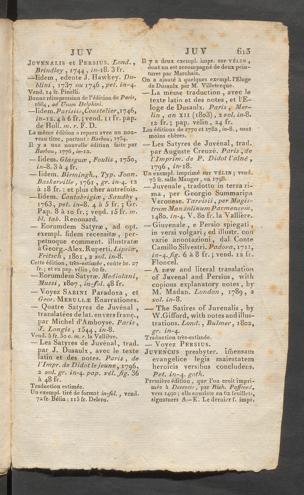 JUV
JUV 613
JUVENALIS et PERSIUS. Lond.,
Brindley, 1744, in-18. 3 fr.
—Iidem, edente J. Hawkey. Du-
blini, 1737 ou 1746, pet. in-4.
Vend. 14 fr. Pinelli.
Bonne réimpression de l'édition de Paris,
1684, ad Usum Delphini.
—Iidem. Parisiis, Coustelier, 1746,
in-12. 4 à 6 fr., vend. 11 fr. pap.
de Holl. m. r. F. D.
La même édition a reparu avec un nou-
veau titre, portant : Barbou, 1754.
Il y a une nouvelle édition faite par
Barbou, 1776, in-12.
—Iidem. Glasguæ, Foulis, 1750,
in-8. 3 à 4 fr.
—Iidem. Birmingh., Typ. Joan.
Baskerville, 1761, gr. in-4. 12
à 18 fr.: et plus cher autrefois.
—Iidem. Cantabrigiæ, Sandby,
1763, pet. in-8. 4 à 5 fr.; Gr.
Pap. 8 à 10 fr.; vend. 15 fr. m.
bl. tab. Renouard.
—Eorumdem Satyræ, ad opt.
exempl. fidem recensitæ, per-
petuoque comment. illustratæ
à Georg.-Alex. Ruperti. Lipsiæ,
Fritsch, 1801, 2 vol. in-8.
Cette édition, très-estimée, coûte 20. 27
fr.; et en pap. vélin, 60 fr.
—Eorumdem Satyræ. Mediolani,
Mussi, 1807, in-fol. 48 fr.
—Voyez SAXII Paradoxa, et
Geor. MERULLÆ Enarrationes.
—Quatre Satyres de Juvénal,
translatées de lat. en vers franç.,
par Michel d'Amboyse. Paris,
J. Longis, 1544, in-8.
Vend. 5 fr. 80 c. m. r. la Vallière.
—Les Satyres de Juvénal, trad.
par J. Dusaulx, avec le texte
latin et des notes. Paris, de
l'Impr. de Didot le jeune, 1796,
2 vol. gr. in-4. pap. vél. fig. 36
à 48 fr.
Traduction estimée.
Un exempl. tiré de format in-fol., vend.
72 fr. Bélin : 115 fr. Deleros.
Il y a deux exempl. impr. sur VÉLIN,
dont un est accompagné de deux pein-
tures par Marchais.
On a ajouté à quelques exempl. l'Eloge
de Dusaulx par M. Villeterque.
—La même traduction, avec le
texte latin et des notes, et l'É-
loge de Dusaulx. Paris, Mer-
lin, an XII (1803), 2 vol. in-8.
12 fr.; pap. vélin, 24 fr.
Les éditions de 1770 et 1782, in-8., sont
moins chères.
—Les Satyres de Juvénal, trad.
par Auguste Creuzé. Paris, de
l'Imprim. de P. Didot l'aîné,
1796, in-18.
Un exempl. imprimé sur VÉLIN; vend.
75 fr. salle Mauger, en 1798.
—Juvenale, tradotto in terza ri-
ma, per Georgio Summaripa
Veronese. Tarvisii, per Magis-
trum Manzolinum Parmensem,
1480. in-4. V. 80 fr. la Vallière.
—Giuvenale, e Persio spiegati
in versi volgari, ed illustr. con
varie annotazioni, dal Conte
Camillo Silvestri. Padova, 1711,
in-4. fig. 6 à 8 fr.; vend. 12 fr.
Floncel.
—A new and literal translation
of Juvenal and Persius, with
copious explanatory notes, by
M. Madan. London, 1789, 2
vol. in-8.
—The Satires of Juvenalis, by
W. Gifford, with notes and illus-
trations. Lond., Bulmer, 1802,
gr. in-4.
Traduction très-estimée.
—Voyez PERSIUS.
JUVENCUS presbyter. imensam
evangelice legis maiestatem
heroicis versibus concludens.
Pet. in-4. goth.
Première édition, que l'on croit impri-
mée à Deventer, par Rich. Paffroet,
vers 1490; elle consiste en 72 feuillets,
signatures A—K. Le dernier f. impr.